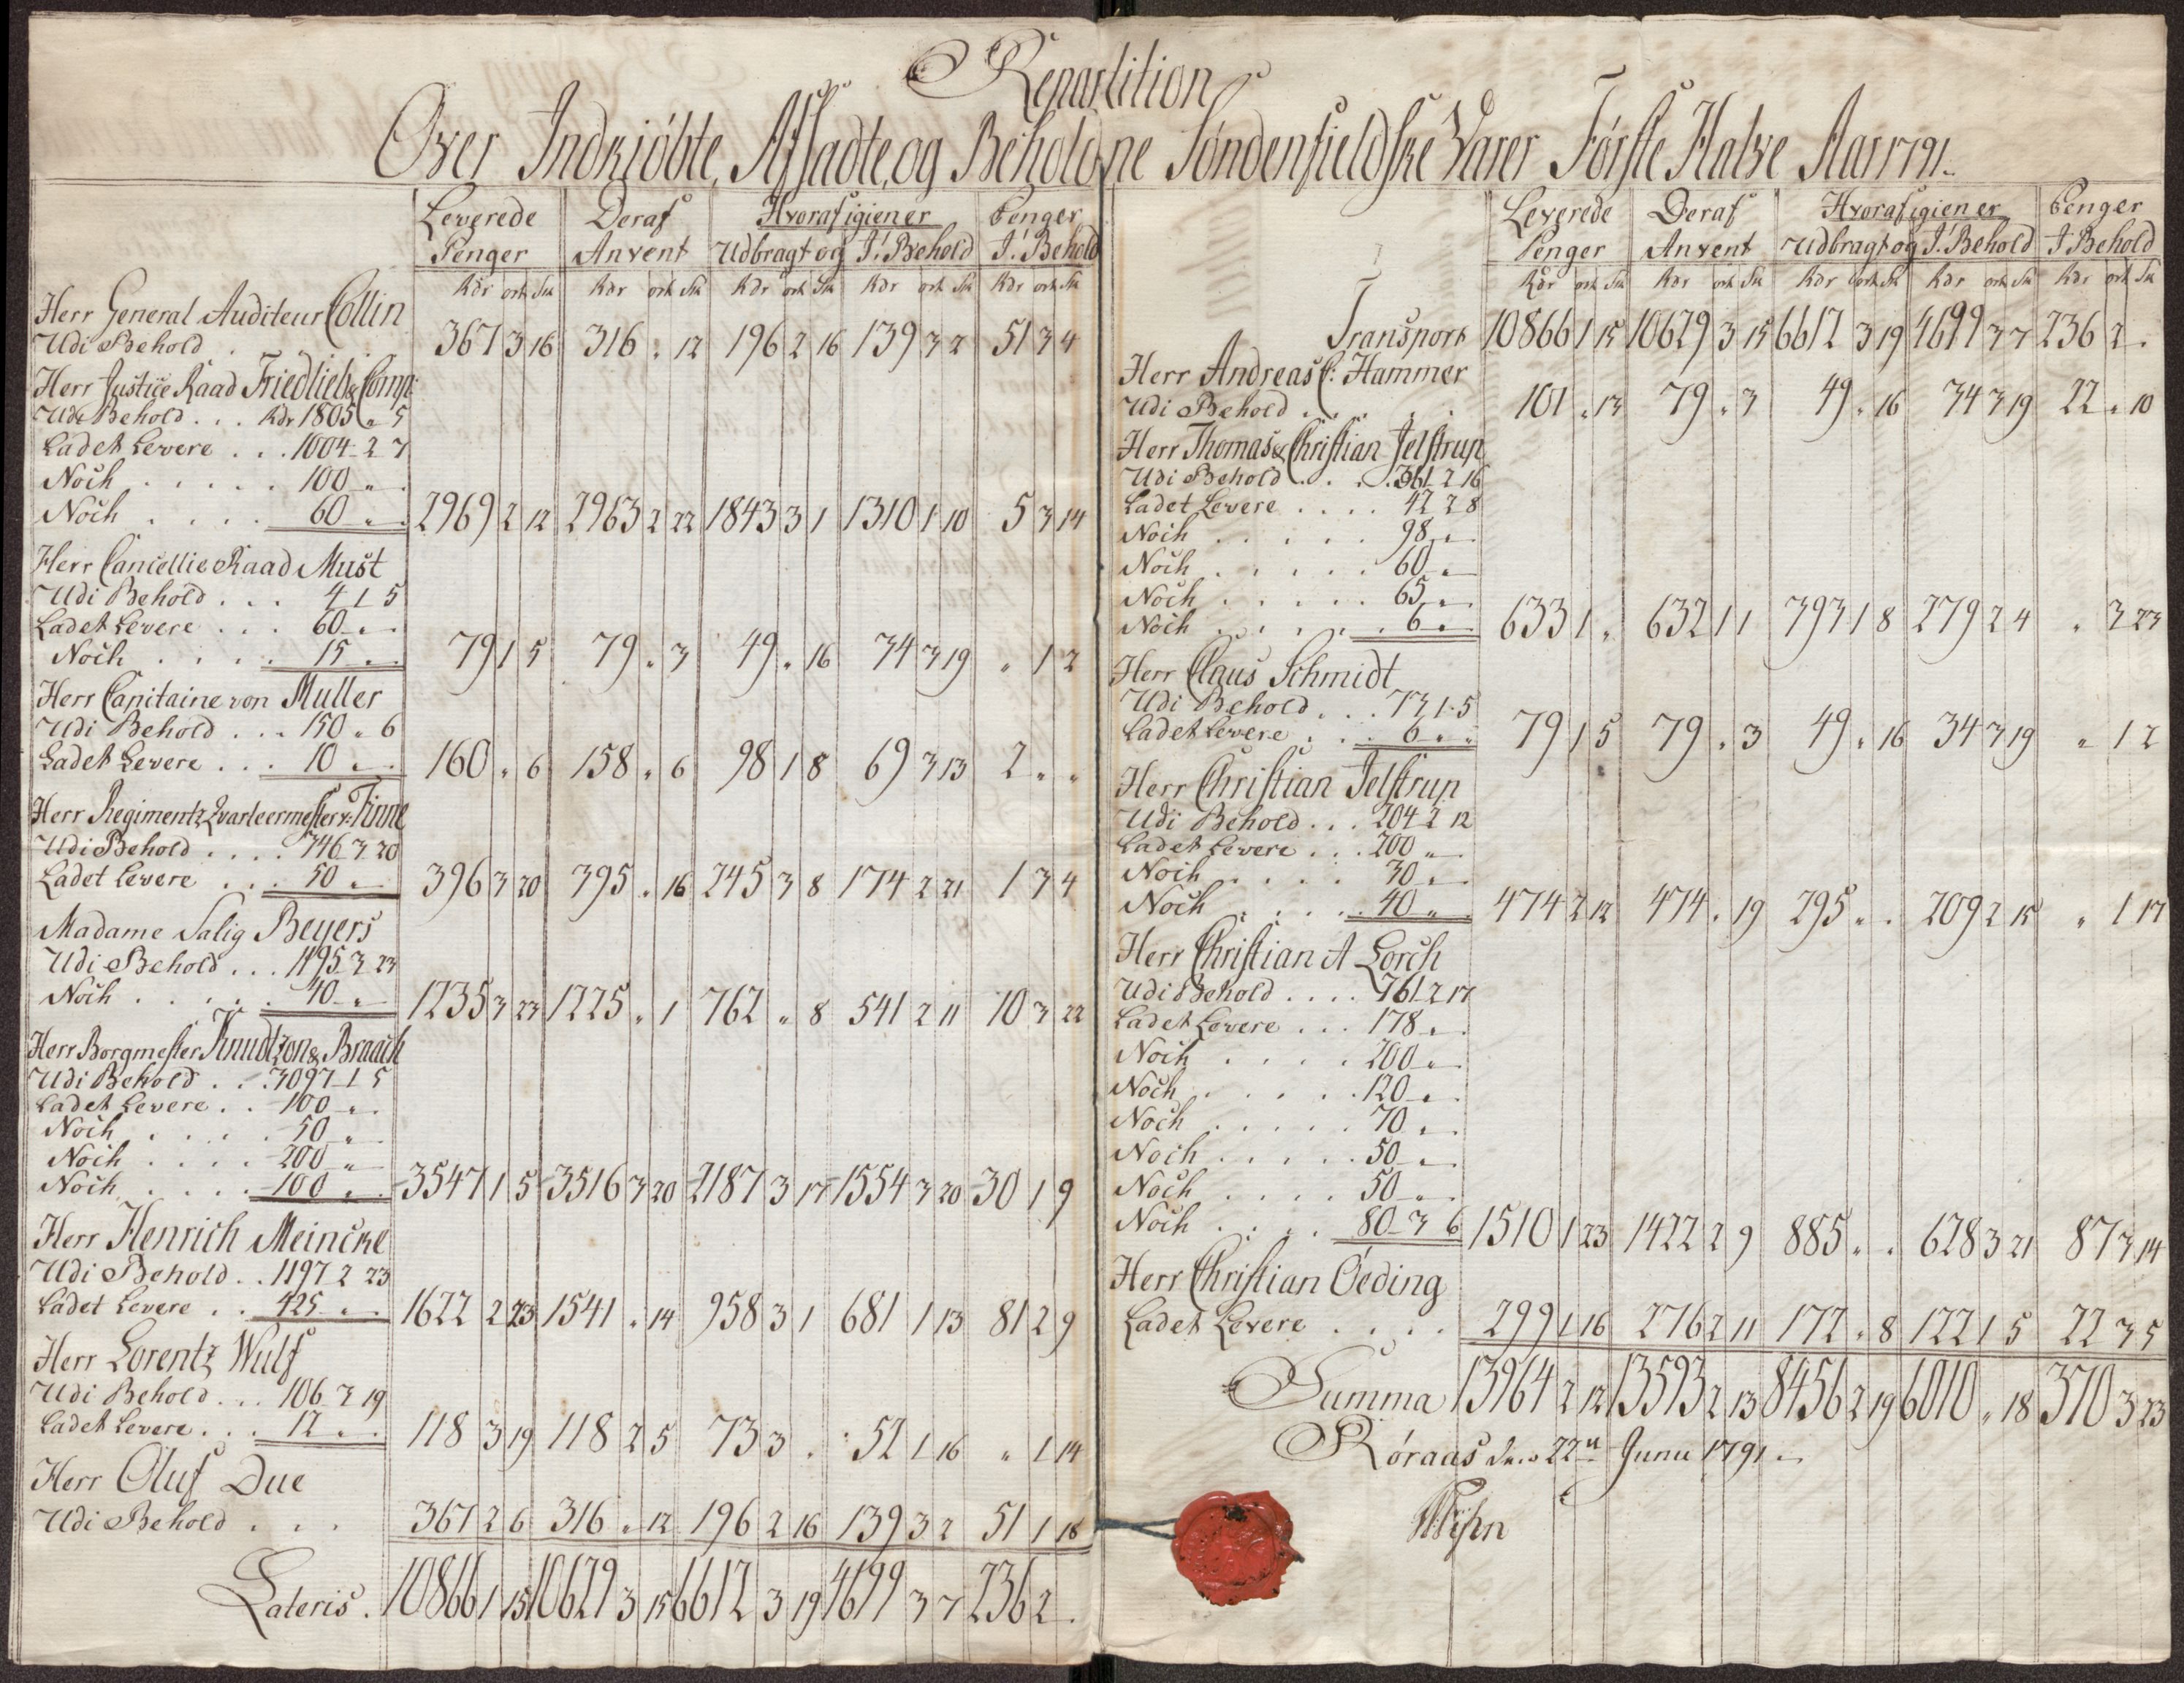 Repartition
Over Indkiöbte, Afsadte, og Beholdne Söndenfieldske Varer Förste Halve Aar 1791.
Leverede Penger | Deraf Anvent | Hvoraf igien er Udbragt og I: Behold | Penger I: Behold
Rdr ort Sk | Rdr ort Sk | Rdr ort Sk | Rdr ort Sk | Rdr ort Sk
Herr General Auditeur Collin
Udi Behold . 367 3 16 | 316 " 12 | 196 2 16 | 139 3 2 | 51 3 4
Herr Justice Raad Friedlieb & Comp:
Udi Behold . . . Rdr 1805 " 5
Ladet Levere . . . 1004 2 7
Noch . . . . . 100 "
Noch . . . . 60 " . 2969 2 12 | 2963 2 22 | 1843 3 1 | 1310 1 10 | 5 3 14
Herr Cancellie Raad Must
Udi Behold . . . 4 1 5
Ladet Levere . . . 60 " .
Noch . . . . 15 " . 79 1 5 | 79 " 3 | 49 " 16 | 34 3 19 | " 1 2
Herr Capitaine von Muller
Udi Behold . . . 150 " 6
Ladet Levere . . . 10 " . 160 " 6 | 158 " 6 | 98 1 8 | 69 3 13 | 2 " "
Herr Regimentz Qvarteermester v: Finne
Udi Behold . . . . 346 3 20
Ladet Levere . . . 50 " 396 3 20 | 395 " 16 | 245 3 8 | 174 2 21 | 1 3 4
Madame Salig Beyers
Udi Behold . . . 1195 3 23
Noch . . . . . 40 " 1235 3 23 | 1225 " 1 | 762 " 8 | 541 2 11 | 10 3 22
Herr Borgmester Knudtzon & Braach
Udi Behold . . . 3097 1 5
Ladet Levere . . 100 " .
Noch . . . . 50 " .
Noch . . . . 200 "
Noch . . . . 100 " . 3547 1 5 | 3516 3 20 | 2187 3 17 | 1554 3 20 | 30 1 9
Herr Henrich Meincke
Udi Behold . . 1197 2 23
Ladet Levere . . 425 " . 1622 2 23 | 1541 " 14 | 958 3 1 | 681 1 13 | 81 2 9
Herr Lorentz Wulf
Udi Behold . . . 106 3 19
Ladet Levere . . . 12 " . 118 3 19 | 118 2 5 | 73 3 . | 52 1 16 | " 1 14
Herr Oluf Due
Udi Behold . . . 367 2 6 | 316 " 12 | 196 2 16 | 139 3 2 | 51 1 18
Lateris . 10866 1 15 | 10629 3 15 | 6612 3 19 | 4699 3 7 | 236 2 .
Leverede Penger | Deraf Anvent | Hvoraf igien er Udbragt og I: Behold | Penger I Behold
Rdr ort Sk | Rdr ort Sk | Rdr ort Sk | Rdr ort Sk | Rdr ort Sk
Transport 10866 1 15 | 10629 3 15 | 6612 3 19 | 4699 3 7 | 236 2 .
Herr Andreas C: Hammer
Udi Behold . . . . 101 " 13 | 79 " 3 | 49 " 16 | 34 3 19 | 22 " 10
Herr Thomas & Christian Jelstrup
Udi Behold . . . . 361 2 16
Ladet Levere . . . . 42 2 8
Noch . . . . . 98 " .
Noch . . . . . 60 "
Noch . . . . . 65 " .
Noch . . . . . 6 " . 633 1 " | 632 1 1 | 393 1 8 | 279 2 4 | " 3 23
Herr Claus Schmidt
Udi Behold . . . 73 1 5
Ladet Levere . . . 6 " " 79 1 5 | 79 " 3 | 49 " 16 | 34 3 19 | " 1 2
Herr Christian Jelstrup
Udi Behold . . . 204 2 12
Ladet Levere . . . 200 " .
Noch . . . . 30 " .
Noch . . . . . 40 " . 474 2 12 | 474 " 19 | 295 " . | 209 2 15 | " 1 17
Herr Christian A Lorch
Udi Behold . . . . 761 2 17
Ladet Levere . . . 178 " .
Noch . . . . 200 " .
Noch . . . . . 120 " .
Noch . . . . . 70 " .
Noch . . . . . 50 " .
Noch . . . . 50 " .
Noch . . . . 80 3 6 1510 1 23 | 1422 2 9 | 885 " . | 628 3 21 | 87 3 14
Herr Christian Öeding
Ladet Levere . . . . 299 1 16 | 276 2 11 | 172 " 8 | 122 1 5 | 22 3 5
Summa 13964 2 12 | 13593 2 13 | 8456 2 19 | 6010 " 18 | 370 3 23
Röraas den 22de Junii 1791